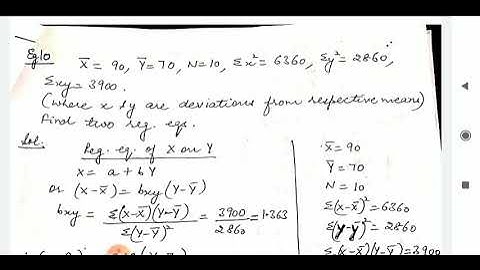 Eg10 X̄ = 90, Ȳ = 70, N = 10, Σx² = 6360, Σy² = 2860,
Σxy = 3900.
(where x & y are deviations from respective means)
Find two reg. eqs.
Sol. Reg. eq. of X on Y
x = a + b Y
or (X-X̄) = bxy (Y-Ȳ)
bxy = Σ(X-X̄)(Y-Ȳ) / Σ(Y-Ȳ)² = 3900 / 2860 = 1.363
X̄ = 90
Ȳ = 70
N = 10
Σ(X-X̄)² = 6360
Σ(Y-Ȳ)² = 2860
Σ(X-X̄)(Y-Ȳ) = 3900